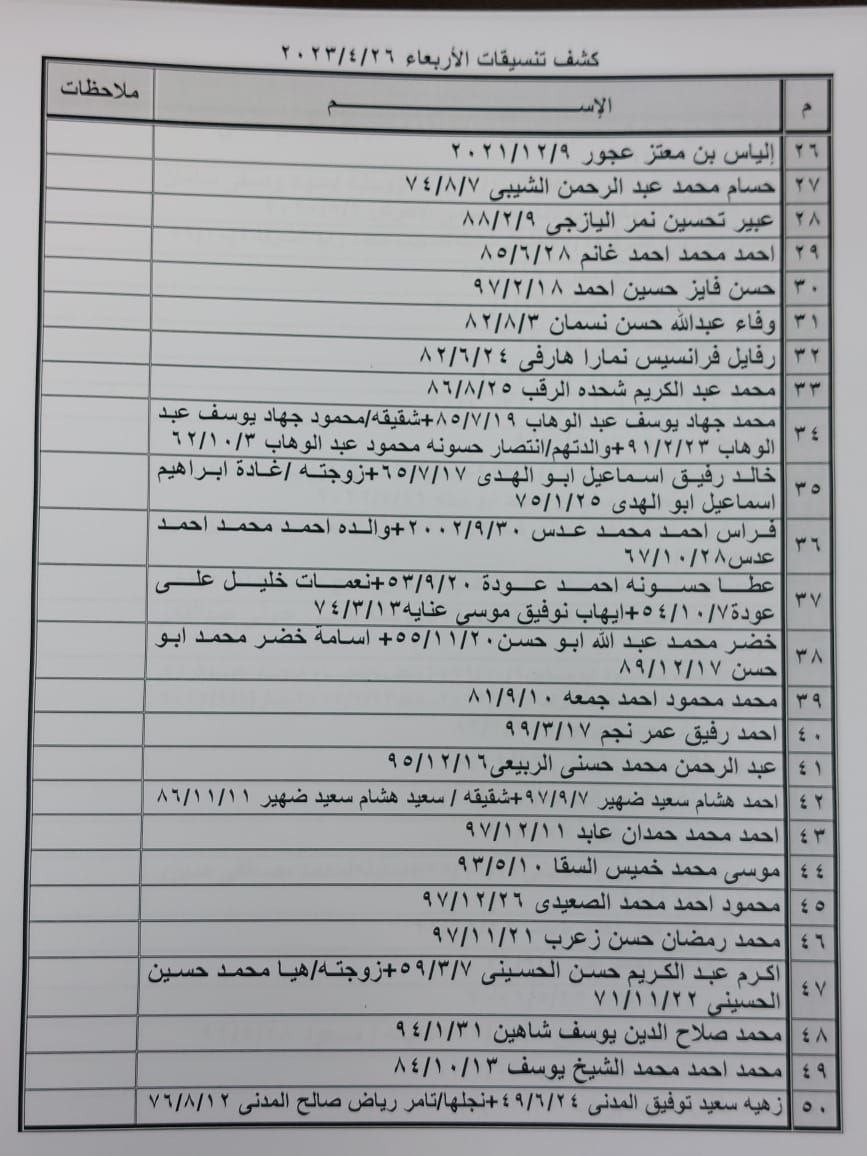 كشف تنسيقات الأربعاء ٢٠٢٣/٤/٢٦
م الإســـــــم ملاحظات
٢٦ إلياس بن معتز عجور ٢٠٢١/١٢/٩
٢٧ حسام محمد عبد الرحمن الشيبى ٧٤/٨/٧
٢٨ عبير تحسين نمر اليازجى ٨٨/٢/٩
٢٩ احمد محمد احمد غانم ٨٥/٦/٢٨
٣٠ حسن فايز حسين احمد ٩٧/٢/١٨
٣١ وفاء عبدالله حسن نسمان ٨٢/٨/٣
٣٢ رفايل فرانسيس نمارا هارفى ٨٢/٦/٢٤
٣٣ محمد عبد الكريم شحده الرقب ٨٦/٨/٢٥
٣٤ محمد جهاد يوسف عبد الوهاب ٨٥/٧/١٩+شقيقه/محمود جهاد يوسف عبد
الوهاب ٩١/٢/٢٣+والدتهم/انتصار حسونه محمود عبد الوهاب ٦٢/١٠/٣
٣٥ خالد رفيق اسماعيل ابو الهدى ٦٥/٧/١٧+زوجته /غادة ابراهيم
اسماعيل ابو الهدى ٧٥/١/٢٥
٣٦ فراس احمد محمد عدس ٢٠٠٢/٩/٣٠+والده احمد محمد احمد
عدس٦٧/١٠/٢٨
٣٧ عطا حسونه احمد عودة ٥٣/٩/٢٠+نعمات خليل على
عودة٥٤/١٠/٧+ايهاب نوفيق موسى عنايه٧٤/٣/١٣
٣٨ خضر محمد عبد الله ابو حسن٥٥/١١/٢٠+ اسامة خضر محمد ابو
حسن ٨٩/١٢/١٧
٣٩ محمد محمود احمد جمعه ٨١/٩/١٠
٤٠ احمد رفيق عمر نجم ٩٩/٣/١٧
٤١ عبد الرحمن محمد حسنى الربيعى٩٥/١٢/١٦
٤٢ احمد هشام سعيد ضهير ٩٧/٩/٧+شقيقه / سعيد هشام سعيد ضهير ٨٦/١١/١١
٤٣ احمد محمد حمدان عابد ٩٧/١٢/١١
٤٤ موسى محمد خميس السقا ٩٣/٥/١٠
٤٥ محمود احمد محمد الصعيدى ٩٧/١٢/٢٦
٤٦ محمد رمضان حسن زعرب ٩٧/١١/٢١
٤٧ اكرم عبد الكريم حسن الحسينى ٥٩/٣/٧+زوجته/هيا محمد حسين
الحسينى ٧١/١١/٢٢
٤٨ محمد صلاح الدين يوسف شاهين ٩٤/١/٣١
٤٩ محمد احمد محمد الشيخ يوسف ٨٤/١٠/١٣
٥٠ زهيه سعيد توفيق المدنى ٤٩/٦/٢٤+نجلها/تامر رياض صالح المدنى ٧٦/٨/١٢